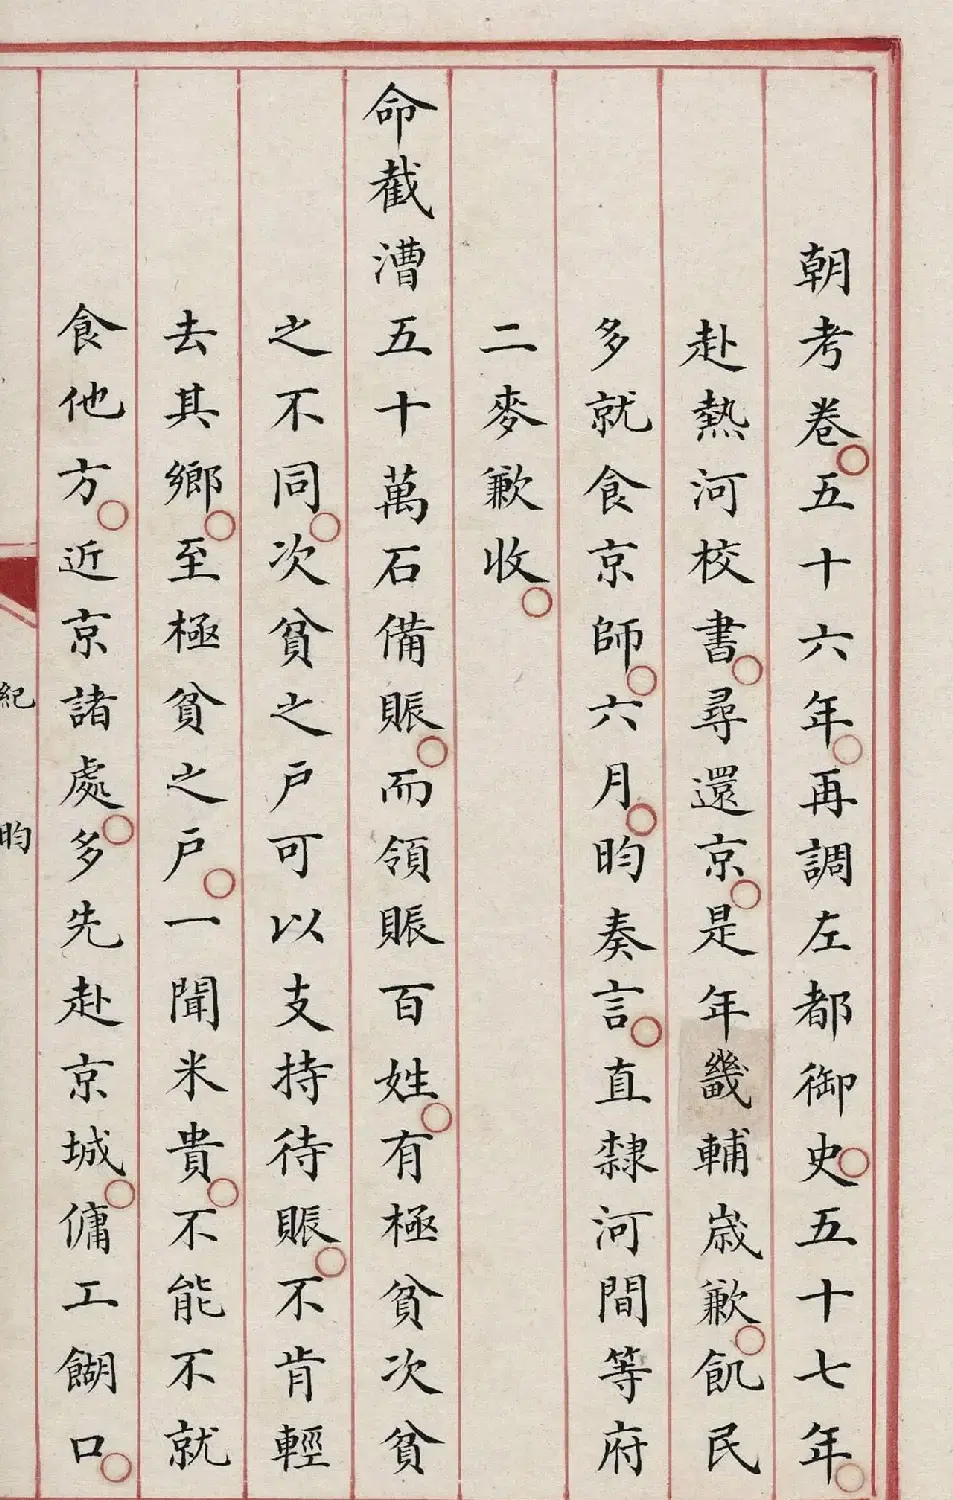 朝考卷五十六年再調左都御史五十七年
赴熱河校書尋還京是年畿輔歲歉飢民
多就食京師六月昀奏言直隸河間等府
二麥歉收
命截漕五十萬石備賑而領賑百姓有極貧次貧
之不同次貧之戶可以支持待賑不肯輕
去其鄉至極貧之戶一聞米貴不能不就
食他方近京諸處多先赴京城傭工餬口
紀昀